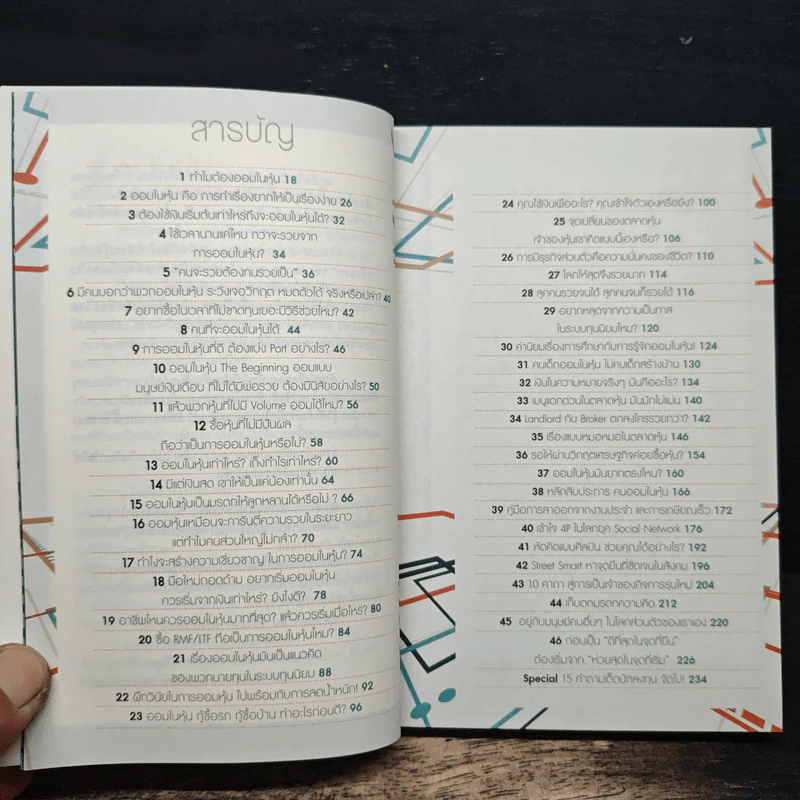 สารบัญ
1 ทำไมต้องออมในหุ้น 18
2 ออมในหุ้น คือ การทำเรื่องยากให้เป็นเรื่องง่าย 26
3 ต้องใช้เงินเริ่มต้นเท่าไหร่ถึงจะออมในหุ้นได้? 32
4 ใช้เวลานานแค่ไหน กว่าจะรวยจาก
การออมในหุ้น? 34
5 "คนจะรวยต้องทนรวยเป็น" 36
6 มีคนบอกว่าพวกออมในหุ้น ระวังเจอวิกฤต หมดตัวได้ จริงหรือเปล่า? 40
7 อยากซื้อในเวลาที่ไม่ขาดทุนเยอะมีวิธีช่วยไหม? 42
8 คนที่จะออมในหุ้นได้ 44
9 การออมในหุ้นที่ดี ต้องแบ่ง Port อย่างไร? 46
10 ออมในหุ้น The Beginning ออมแบบ
มนุษย์เงินเดือน ที่ไม่ได้มีพ่อรวย ต้องมีนิสัยอย่างไร? 50
11 แล้วพวกหุ้นที่ไม่มี Volume ออมได้ไหม? 56
12 ซื้อหุ้นที่ไม่มีปันผล
ถือว่าเป็นการออมในหุ้นหรือไม่? 58
13 ออมในหุ้นเท่าไหร่? เก็งกำไรเท่าไหร่? 60
14 มีแต่เงินสด เขาให้เป็นแค่น้องเท่านั้น 64
15 ออมในหุ้นเป็นมรดกให้ลูกหลานได้หรือไม่ ? 66
16 ออมหุ้นเหมือนจะการันตีความรวยในระยะยาว
แต่ทำไมคนส่วนใหญ่ไม่กล้า? 70
17 ทำไงจะสร้างความเชี่ยวชาญ ในการออมในหุ้น? 74
18 มือใหม่ถอดด้าม อยากเริ่มออมในหุ้น
ควรเริ่มจากเงินเท่าไหร่? ยังไงดี? 78
19 อาชีพไหนควรออมในหุ้นมากที่สุด? แล้วควรเริ่มเมื่อไหร่? 80
20 ซื้อ RMF/LTF ถือเป็นการออมในหุ้นไหม? 84
21 เรื่องออมในหุ้นมันเป็นแนวคิด
ของพวกนายทุนในระบบทุนนิยม 88
22 ฝึกวินัยในการออมหุ้น ไปพร้อมกับการลดน้ำหนัก! 92
23 ออมในหุ้น กู้ซื้อรถ กู้ซื้อบ้าน ทำอะไรก่อนดี? 96
24 คุณใช้เงินเพื่ออะไร? คุณเข้าใจตัวเองหรือยัง? 100
25 จุดเปลี่ยนของตลาดหุ้น
เจ้าของหุ้นเขาคิดแบบนี้เองหรือ? 106
26 การมีธุรกิจส่วนตัวคือความมั่นคงของชีวิต? 110
27 โลภให้สุดจึงรวยมาก 114
28 ลูกคนรวยจนได้ ลูกคนจนก็รวยได้ 116
29 อยากหลุดจากความเป็นทาส
ในระบบทุนนิยมไหม? 120
30 ค่านิยมเรื่องการศึกษากับการรู้จักออมในหุ้น! 124
31 คบเด็กออมในหุ้น ไม่คบเด็กสร้างบ้าน 130
32 เงินในความหมายจริงๆ มันคืออะไร? 134
33 เมนูแดกด่วนในตลาดหุ้น มันมักไม่แม่น 140
34 Landlord กับ Broker ตกลงใครรวยกว่า? 142
35 เรื่องแบบหมอหมอในตลาดหุ้น 146
36 รอให้ผ่านวิกฤตเศรษฐกิจค่อยซื้อหุ้น? 154
37 ออมในหุ้นมันยากตรงไหน? 160
38 หลักสิบประการ คนออมในหุ้น 166
39 คู่มือการลาออกจากงานประจำ และการเกษียณเร็ว 172
40 เข้าใจ 4P ในโลกยุค Social Network 176
41 หัดคิดแบบศิลปิน ช่วยคุณได้อย่างไร? 192
42 Street Smart หาจุดยืนที่ชัดเจนในสังคม 196
43 10 คาถา สู่การเป็นเจ้าของกิจการรุ่นใหม่ 204
44 เก็บตกมรดกความคิด 212
45 อยู่กับมนุษย์คนอื่นๆ ในโลกส่วนตัวของเราเอง 220
46 ก่อนเป็น "ดีที่สุดในจุดที่ยืน"
ต้องเริ่มจาก "ห่วยสุดในจุดที่เริ่ม" 226
Special 15 คำถามเด็ดนักลงทุน จัดไป! 234